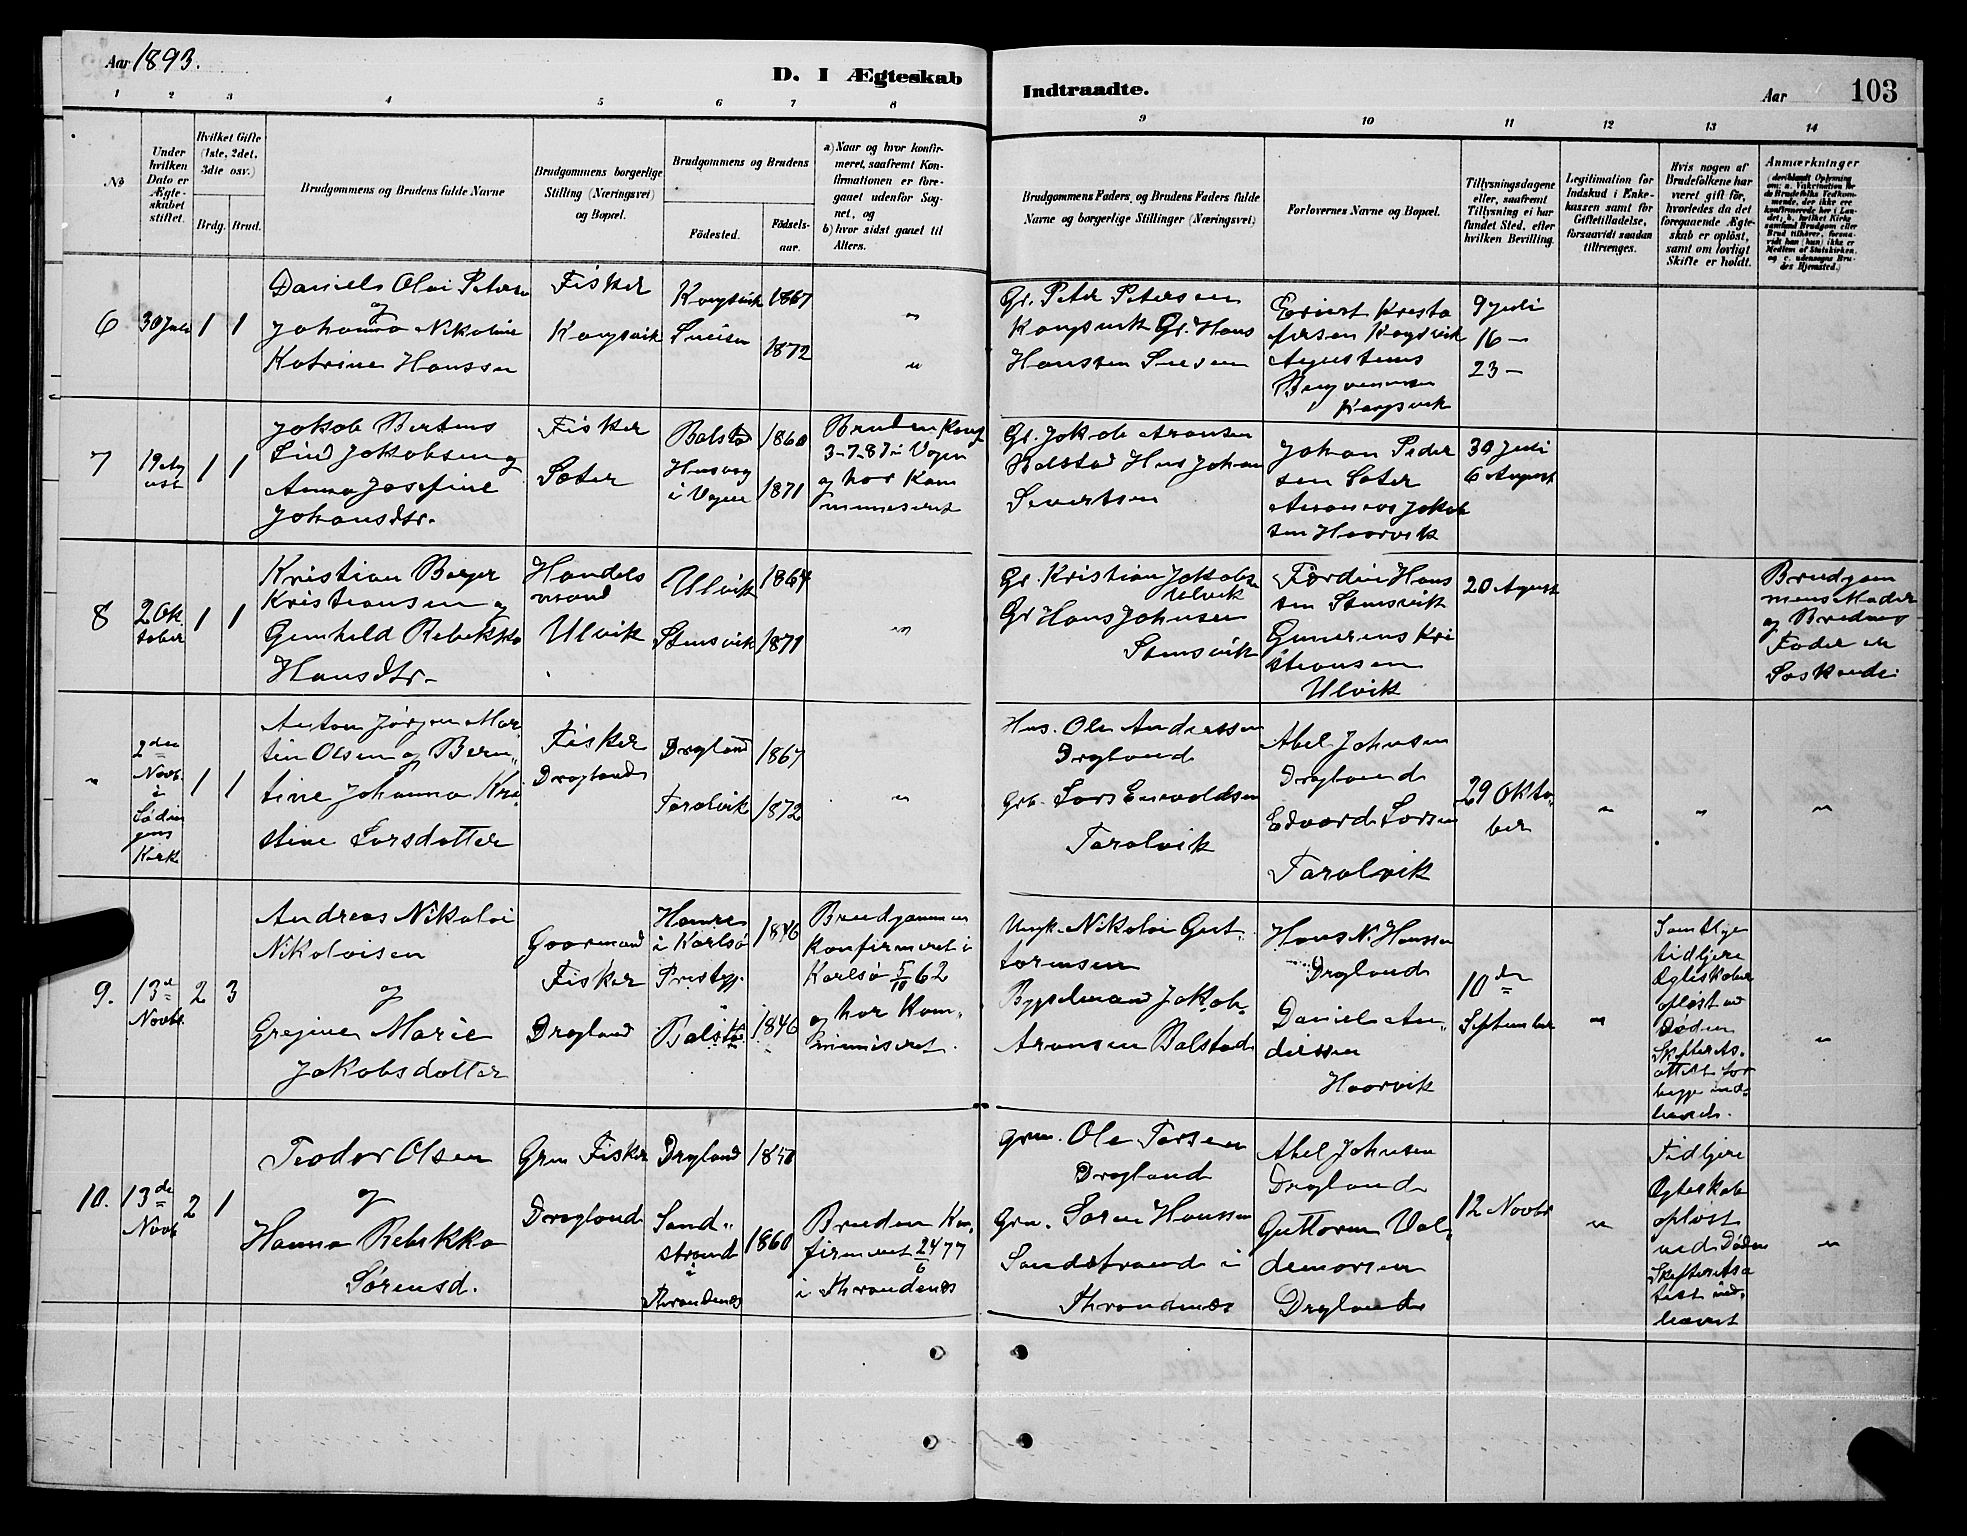 Aar 1893.
D. I Ægteskab
Indtraadte.
Aar
103
1 2 3 4 5 6 7 8
9 10 11 12 13 14
No
Under hvilken Dato er Ægteskabet stiftet.
Hvilket Gifte (1ste, 2det, 3die osv.)
Brdg. Brud.
Brudgommens og Brudens fulde Navne
Brudgommens borgerlige Stilling (Næringsvei) og Bopæl.
Brudgommens og Brudens
Fødested.
Fødselsaar.
a) Naar og hvor konfirmeret, saafremt Konfirmationen er foregaaet udenfor Sognet, og
b) hvor sidst gaaet til Alters.
Brudgommens Faders, og Brudens Faders fulde Navne og borgerlige Stillinger (Næringsvei)
Forlovernes Navne og Bopæl.
Tillysningsdagene eller, saafremt Tillysning ei har fundet Sted, efter hvilken Bevilling.
Legitimation for Indskud i Enkekassen samt for Giftetilladelse, forsaavidt saadan tiltrænges.
Hvis nogen af Brudefolkene har været gift før, hvorledes da det foregaaende Ægteskab er opløst, samt om lovligt Skifte er holdt.
Anmærkninger
6
30 Juli
1 1
Daniels Olai Petersen
og
Johanna Nikoline
Katrine Hanssen
Fisker
Kongsvik
Kongsvik
1867
1872
"
"
Gr. Peter Petersen
Kongsvik Gr. Hans
Hanssen
Kongsvik
9 Juli
16 –
23 –
7
19 August
1 1
Jakob Bertens
Lind Jakobsen og
Anna Josefine
Johansdtr.
Fisker
Sæter
Balstad
i Vogen
1860
1871
Bruden Konf
3–7–87 i Vogen
og hos Kom
municeret
Gr. Jakob Aronsen
Balstad Hus Johan
Severtsen
Johan Peder
sen Sæter
Jakob
sen Haarvik
30 Juli
6 August
8
2 Ok
tober
1 1
Kristian Berger
Kristiansen og
Gunhild Rebekka
Hansdtr.
Handels
mand
Ulvik
Ulvik
Stensvik
1864
1871
"
Gr. Kristian Jakobsen
Ulvik
Gr Hans Johnsen
Stensvik
Hans
sen Stensvik
Kri
stiansen
Ulvik
20 August
Brudgom
mens Moder
og Brudens
Fader er
Søskende
"
2den
Novb.
i
Lødin
gens
Kirke
1 1
Anton Jørgen Mar
tin Olsen og Bern„
tine Johanna Kri
stine Larsdatter
Fisker
Drogland
Drogland
Taralvik
1867
1872
"
Hus. Ole Andressen
Drogland
Grb. Lars Enevoldsen
Taralvik
Abel Johnsen
Drogland
Edvard Larsen
Taralvik
29 Okto
ber
"
"
"
9.
13de
Novbr.
2 3
Andreas Nikolai
Nikolaisen
og
Gregine Marie
Jakobsdatter
Gaardmand
Fisker
Drogland
i Karlsø
Prestgj.
Balstad
1846
1846
Brudgommen
konfirmeret i
Karlsø 5/10 62
og har Kom„
municeret.
Ungk. Nikolai Gut„
tormsen
Bygselmand Jakob
Aronsen Balstad
Hans N. Hanssen
Drogland
Daniel An„
derssen
Haarvik
10de
September
"
Samtlige
tidligere
Egteskaber
opløst ved
Døden
Skifteat„
attest for
begge ind„
leveret.
"
10.
13de
Novb
2 1
Teodor Olsen
og
Hanna Rebekka
Sørensd.
Grm Fisker
Drogland
Drogland
Sand„
strand
i
Throndenes
1860
Bruden Kon„
firmeret 24/6 77
i Throndenes
Grm. Ole Torsen
Drogland
Grm. Søren Hanssen
Sandstrand i
Throndenes
Abel Johnsen
Drogland
Guttorm Val„
demarsen
Drogland
12 Novbr
"
Tidligere
Egteskab
opløst
ved Døden
Skifteat
test ind„
leveret
"